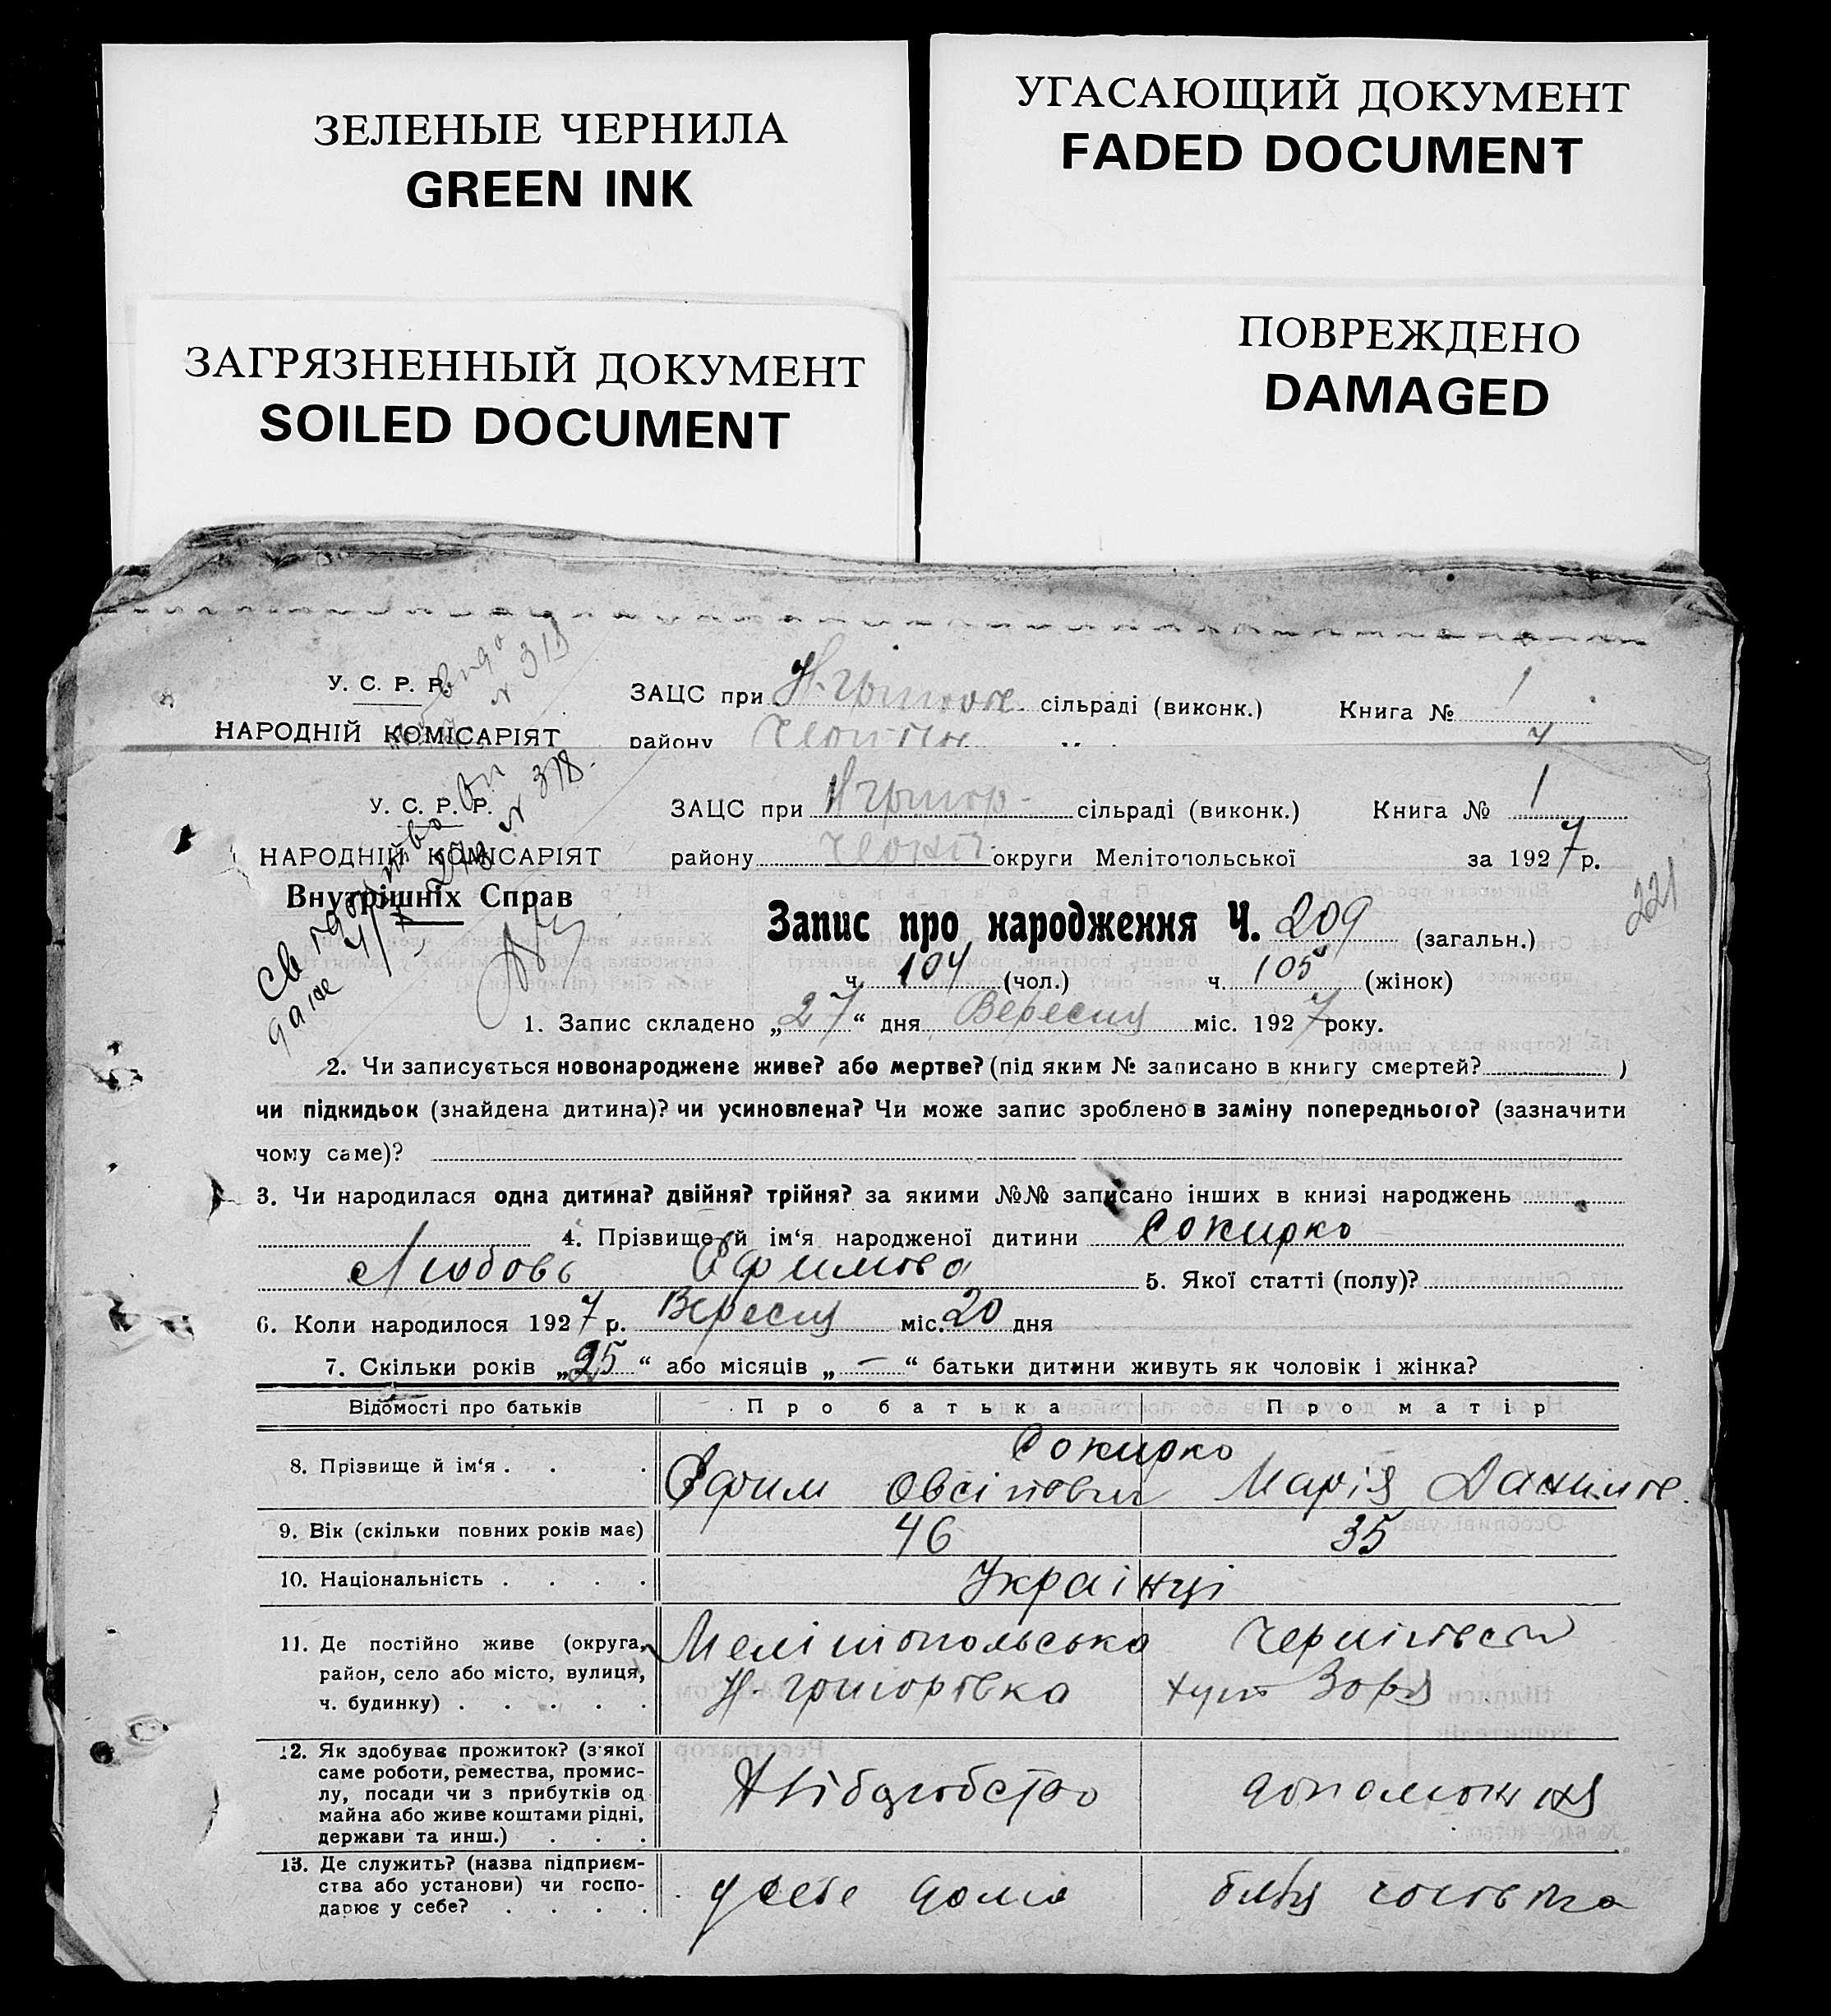 ЗЕЛЕНЫЕ ЧЕРНИЛА
GREEN INK
УГАСАЮЩИЙ ДОКУМЕНТ
FADED DOCUMENT
ЗАГРЯЗНЕННЫЙ ДОКУМЕНТ
SOILED DOCUMENT
ПОВРЕЖДЕНО
DAMAGED
У. С. Р. Р. ЗАЦС при сільраді (виконк.) Книга № 1
НАРОДНІЙ КОМІСАРІЯТ району
У. С. Р. Р. ЗАЦС при Н Григор сільраді (виконк.) Книга № 1
НАРОДНІЙ КОМІСАРІЯТ району округи Мелітопольської за 1927 р.
Внутрішніх Справ
№ 318
221
Запис про народження Ч. 209 (загальн.)
ч. 104 (чол.) ч. 105 (жінок)
1. Запис складено „27“ дня Вересня міс. 1927 року.
2. Чи записується новонароджене живе? або мертве? (під яким № записано в книгу смертей? )
чи підкидьок (знайдена дитина)? чи усиновлена? Чи може запис зроблено в заміну попереднього? (зазначити
чому саме)?
3. Чи народилася одна дитина? двійня? трійня? за якими №№ записано інших в книзі народжень
4. Прізвище й ім'я народженої дитини Сокирко
Любовь Ефимова 5. Якої статті (полу)?
6. Коли народилося 1927 р. Вересня міс. 20 дня
7. Скільки років „25“ або місяців „—“ батьки дитини живуть як чоловік і жінка?
Відомості про батьків Про батька Про матір
Сокирко
8. Прізвище й ім'я . . . Ефим Овсіпович Марія
9. Вік (скільки повних років має) 46 35
10. Національність . . . . Українці
11. Де постійно живе (округа, район, село або місто, вулиця, ч. будинку) . . . . . Мелітопольська
Н. Григорівка хут Зоря
12. Як здобуває прожиток? (з якої
саме роботи, ремества, промис-
лу, посади чи з прибутків од
майна або живе коштами рідні,
держави та инш.) . . .
Хліборобство
13. Де служить? (назва підприєм-
ства або установи) чи госпо-
дарює у себе? . . . .
у себе дома